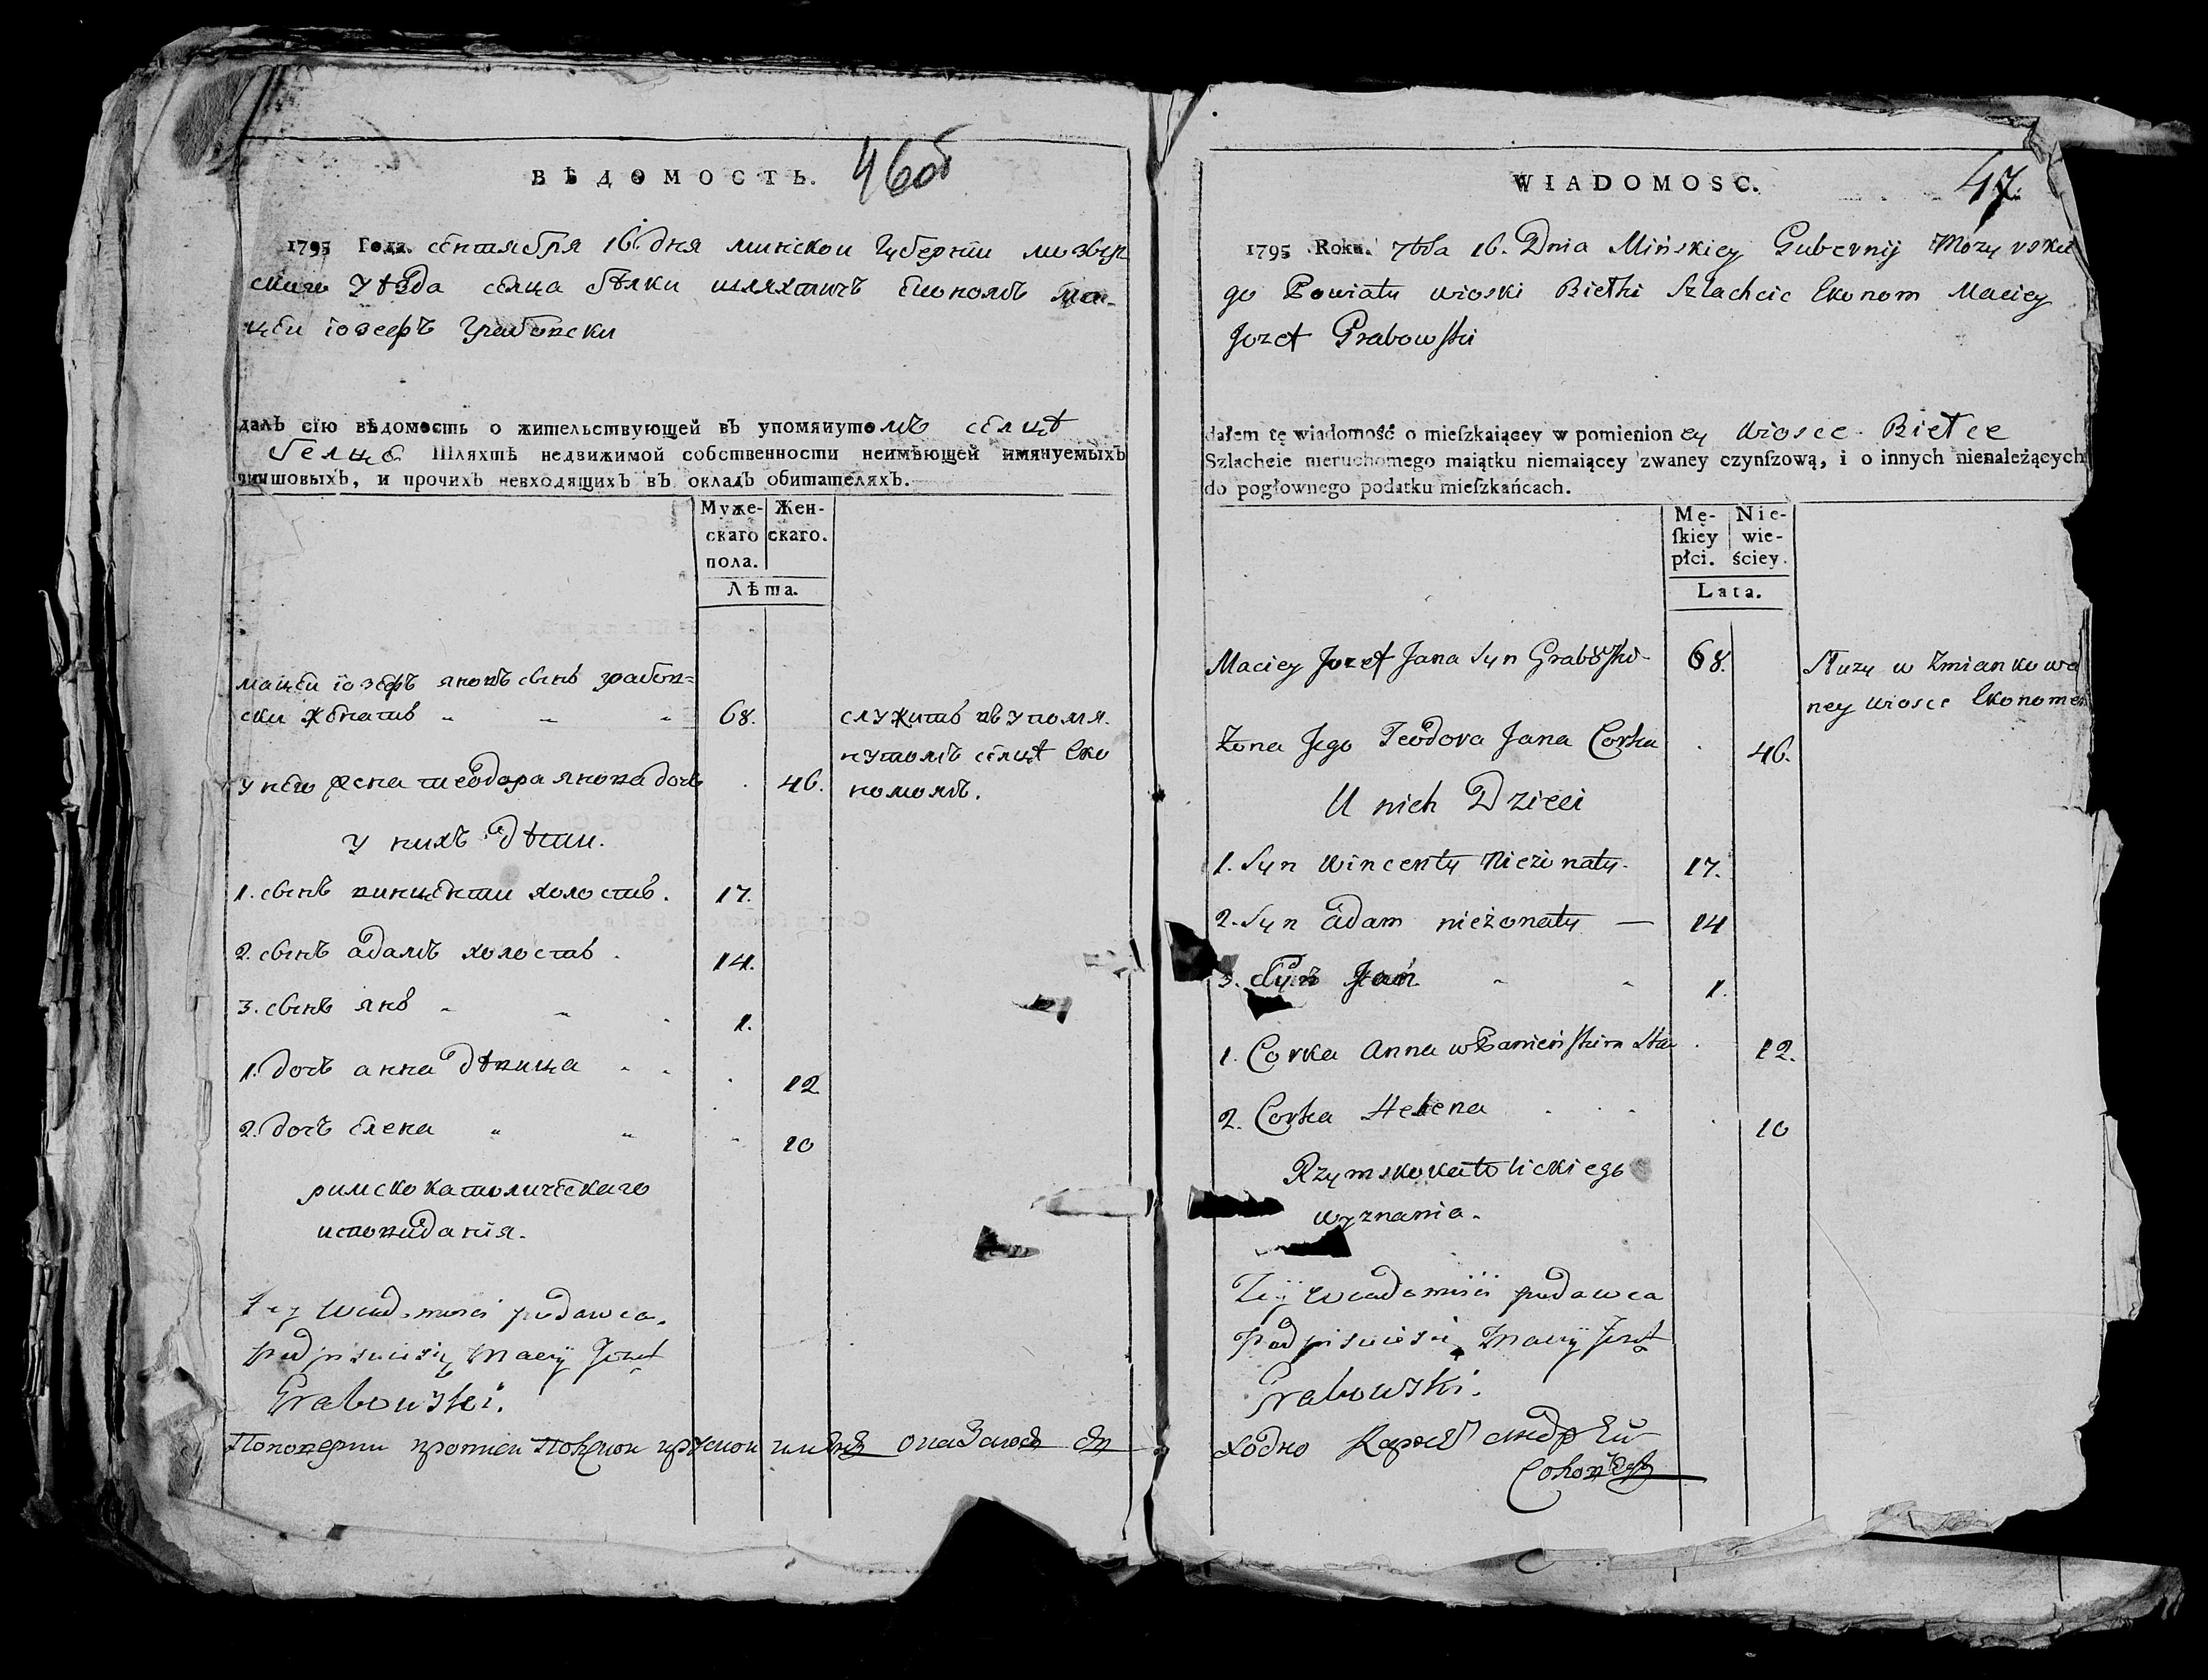 ВѢДОМОСТЬ. 46об
1795 Года. сентября 16. дня минской Губернии мозыр
скаго уѣзда селца бѣлки шляхтичъ Економъ Ма-
цей іозефъ Грабовски
далъ сію вѣдомость о жительствующей въ упомянутомъ селцѣ
белцѣ Шляхтѣ недвижимой собственности неимѣющей имянуемыхъ
чиншовыхъ, и прочихъ невходящихъ въ окладъ обитателяхъ.
Муже- Жен-
скаго скаго.
пола.
Лѣта.
мацей іозефъ яновъ сынъ грабов=
ски женатъ 68. служитъ в упомя-
нутомъ селцѣ Еко
номомъ.
у него жена теодора янова дочь 46.
у нихъ дѣти.
1. сынъ винценти холостъ. 17.
2. сынъ адамъ холостъ. 14.
3. сынъ янъ 1.
1. дочь анна дѣвица 12
2. дочь Елена 10
римскокатолическаго
исповиданія.
Tey Wiadomosci podawca.
Podpisuie się Maciy Jozef
Grabowski.
WIADOMOSC. 47.
1795 Roku. 7bra 16. Dnia Mińskiey Gubernij Mozyrskie
go Powiatu wioski Biełki Szlachcic Ekonom Maciey
Jozef Grabowski
dałem tę wiadomość o mieſzkaiącey w pomienioney wiosce Biełce
Szlachcie nieruchomego maiątku niemaiącey zwaney czynſzową, i o innych nienależących
do pogłownego podatku mieſzkańcach.
Mę- Nie-
ſkiey wie-
płci. ściey.
Lata.
Maciey Jozef Jana Syn Grabowski 68. Służy w Zmiankowa
ney wiosce Ekonomem
Zona Jego Teodora Jana Corka 46.
U nich Dzieci
1. Syn Wincenty nieżonaty. 17.
2. Syn Adam nieżonaty — 14
3. Syn Jan 1.
1. Corka Anna w Panieńskim sta 12.
2. Corka Helena 10
Rzymskokatolickiego
wyznania.
Tey wiadomości podawca
Podpisuie się Maciy Jozef
Grabowski.